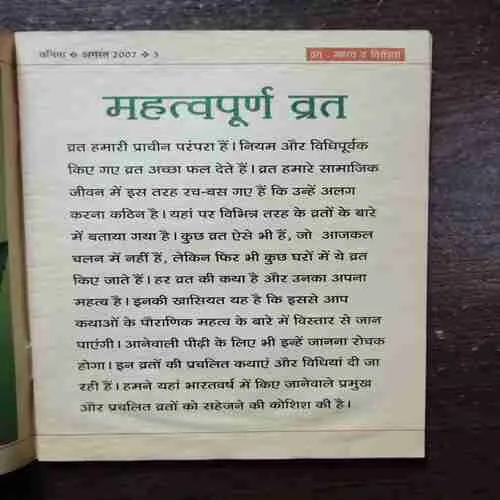 वनिता ❖ अगस्त 2007 ❖ 3
व्रत - महत्व व विधियां
महत्वपूर्ण व्रत
व्रत हमारी प्राचीन परंपरा हैं। नियम और विधिपूर्वक
किए गए व्रत अच्छा फल देते हैं। व्रत हमारे सामाजिक
जीवन में इस तरह रच-बस गए हैं कि उन्हें अलग
करना कठिन है। यहां पर विभिन्न तरह के व्रतों के बारे
में बताया गया है। कुछ व्रत ऐसे भी हैं, जो आजकल
चलन में नहीं हैं, लेकिन फिर भी कुछ घरों में ये व्रत
किए जाते हैं। हर व्रत की कथा है और उनका अपना
महत्व है। इनकी खासियत यह है कि इससे आप
कथाओं के पौराणिक महत्व के बारे में विस्तार से जान
पाएंगी। आनेवाली पीढ़ी के लिए भी इन्हें जानना रोचक
होगा। इन व्रतों की प्रचलित कथाएं और विधियां दी जा
रही हैं। हमने यहां भारतवर्ष में किए जानेवाले प्रमुख
और प्रचलित व्रतों को सहेजने की कोशिश की है।